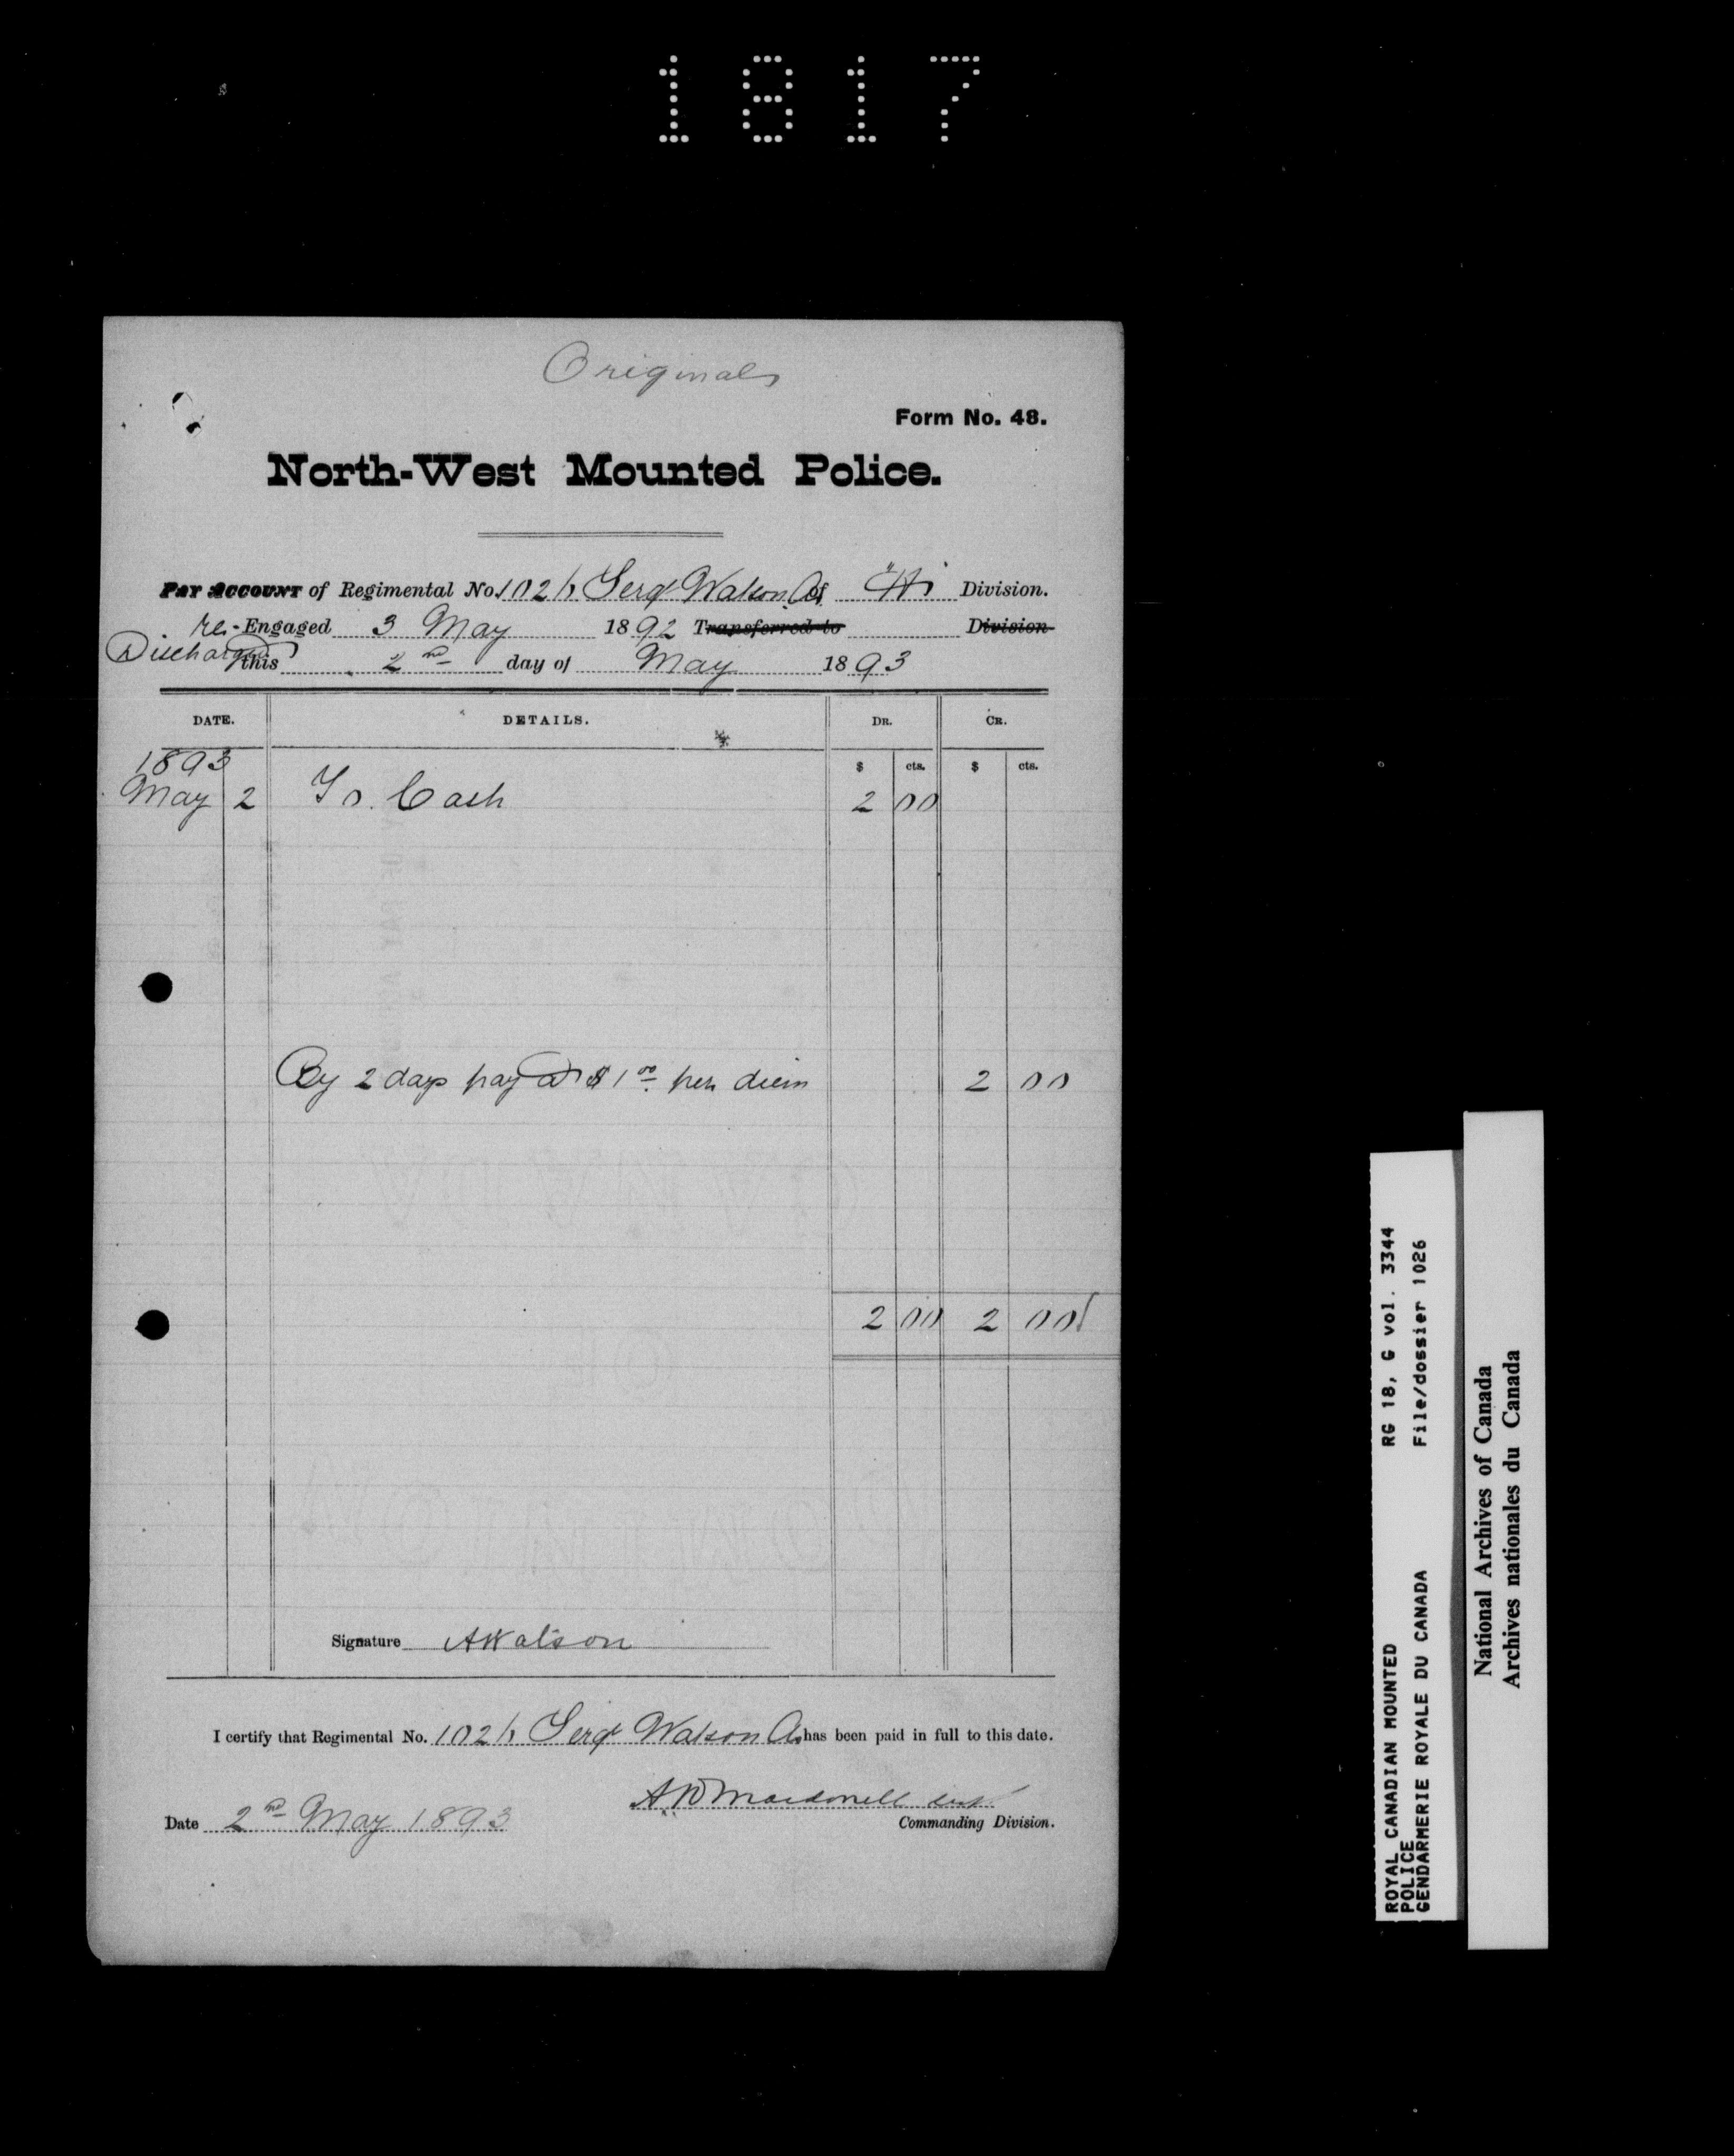 1817
Original
Form No. 48.
North-West Mounted Police.
Pay Account of Regimental No. 1026 Sergt Watson A. of "H" Division.
re-Engaged 3 May 1892 Transferred to Division
Discharged this 2nd day of May 1893
DATE. DETAILS. DR. CR.
$ cts. $ cts.
1893
May 2 To Cash 2 00
By 2 days pay @ $1 00 per diem 2 00
2 00 2 00
Signature AWatson
I certify that Regimental No. 1026 Sergt Watson A. has been paid in full to this date.
Macdonell
Date 2nd May 1893 Commanding Division.
ROYAL CANADIAN MOUNTED RG 18, G vol. 3344
POLICE
GENDARMERIE ROYALE DU CANADA File/dossier 1026
National Archives of Canada
Archives nationales du Canada